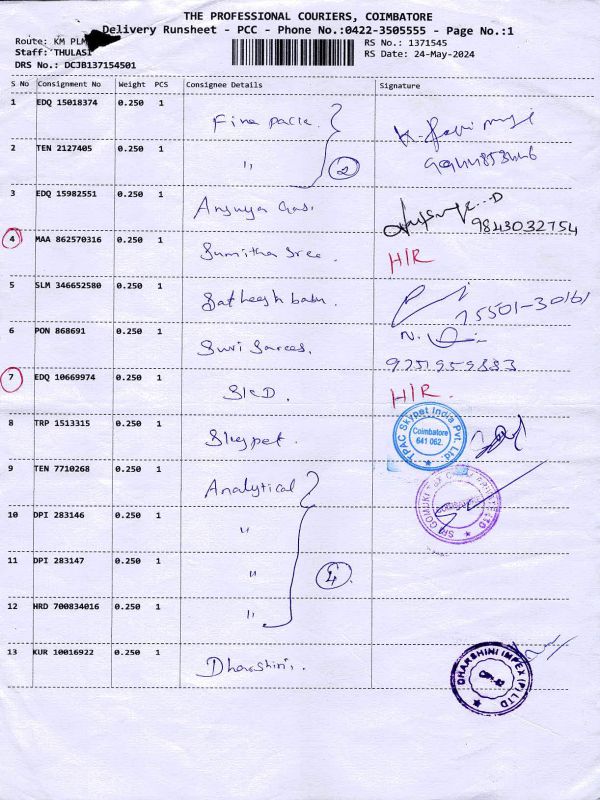 THE PROFESSIONAL COURIERS, COIMBATORE
Delivery Runsheet - PCC - Phone No.:0422-3505555 - Page No.:1
Route: KM PLM
RS No.: 1371545
Staff: THULASI
RS Date: 24-May-2024
DRS No.: DCJB137154501
S No Consignment No Weight PCS Consignee Details Signature
1 EDQ 15018374 0.250 1 Fine pack.
2 TEN 2127405 0.250 1 " 2
3 EDQ 15982551 0.250 1 9843032754
4 MAA 862570316 0.250 1 Sumitha Sree. H/R
5 SLM 346652580 0.250 1 Satheesh babu. 75501-30161
6 PON 868691 0.250 1 Suri Sarees. N.
9751959883
7 EDQ 10669974 0.250 1 H/R.
8 TRP 1513315 0.250 1 Skypet. TPAC Skypet India Pvt. Ltd. Coimbatore 641 062.
9 TEN 7710268 0.250 1 Analytical
10 DPI 283146 0.250 1 "
11 DPI 283147 0.250 1 " 4
12 HRD 700834016 0.250 1 "
13 KUR 10016922 0.250 1 Dharshini. DHARSHINI IMPEX (P) LTD